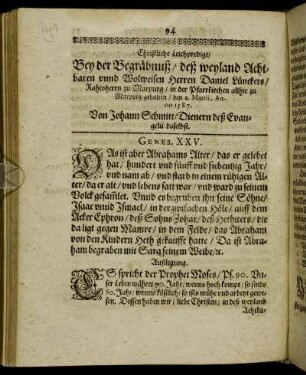 94
Christliche Leichpredigt/
Bey der Begräbnuß/ deß weyland Acht-
baren vnnd Wolweisen Herren Daniel Lünckers/
Rahtsherrn zu Marpurg/ in der Pfarrkirchen allhie zu
Marpurg gehalten/ den 2. Martii, An-
no 1587.
Von Johann Schmitz/ Dienern deß Evan-
gelii daselbst.
GENES. XXV.
DAs ist aber Abrahams Alter/ das er gelebet
hat/ hundert vnd fünff vnd siebentzig Jahr/
vnd nam ab/ vnd starb in einem rühigen Al-
ter/ da er alt/ vnd lebens satt war/ vnd ward zu seinem
Volck gesamlet. Vnnd es begruben jhn seine Söhne/
Isaac vnnd Ismael/ in der zwifachen Höle/ auff dem
Acker Ephron/ deß Sohns Zohar/ deß Hethiters/ die
da ligt gegen Mamre/ in dem Felde/ das Abraham
von den Kindern Heth gekaufft hatte/ Da ist Abra-
ham begraben mit Sara seinem Weibe/ ꝛc.
Außlegung.
ES spricht der Prophet Moses/ Ps. 90. Vn-
ser Leben währet 70. Jahr/ wenns hoch kompt/ so sinds
80. Jahr/ wenns köstlich/ so ists mühe vnd arbeyt gewe-
sen. Dessen haben wir/ liebe Christen/ in deß weyland
Achtba-